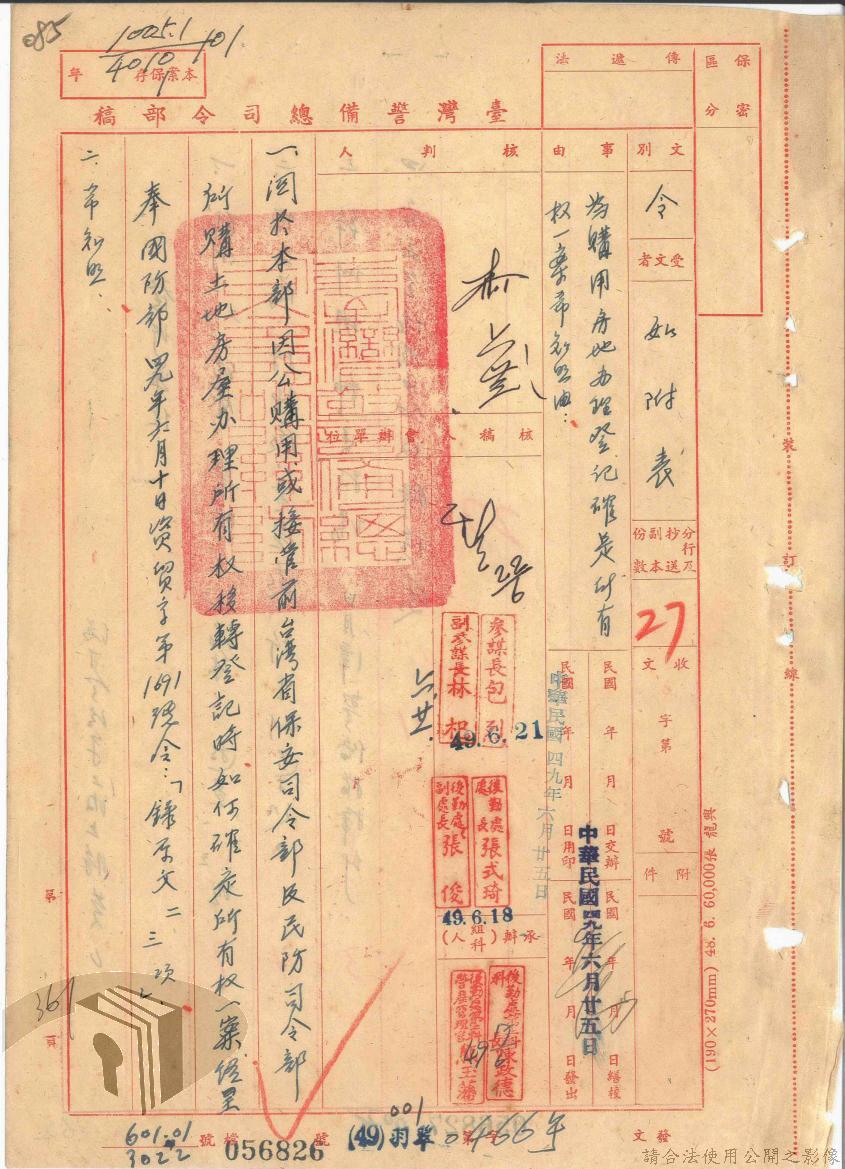 085
1005.1
4010
101
本案保存 年
臺灣警備總司令部稿
保密
區分
傳遞法
文別
令
受文者
如附表
分行及
抄送
副本
份數
27
收文
字第
號
附件
事由
為購用房地办理登記確定所有
权一案希知照由：
民國 年 月 日交辦
民國 年 月 日繕校
民國 年 月 日用印
民國 年 月 日發出
中華民國四九年六月廿五日
中華民國四九年六月廿五日
核判人
核稿人
會辦單位
參謀長包烈
副參謀長林
49.6.21
後勤處處長張式琦
後勤處副處長張俊
49.6.18
承辦(組科人)
一、関於本部因公購用或接管前台湾省保安司令部及民防司令部
所購土地房屋办理所有权移轉登記時如何確定所有权一案経呈
奉國防部四九年六月十日資貿字第1691號令：「錄原文二三項」
二、希知照：
第 361 頁
裝
訂
線
(190×270mm) 48. 6. 60,000張 龍興
發文
(49)
001
字第
0466
號
056826
檔號
601.01
3022
請合法使用公開之影像